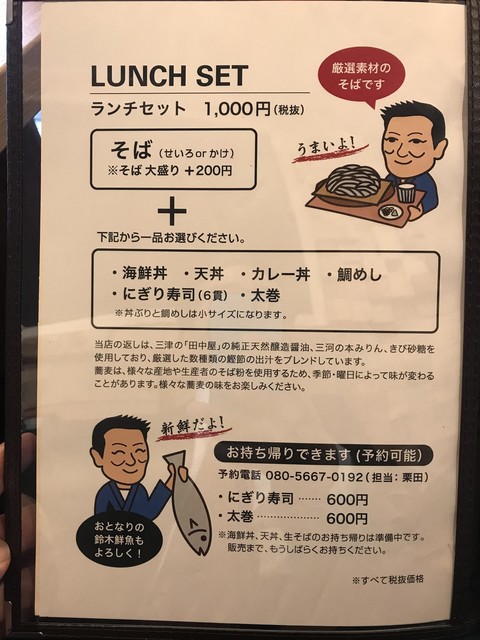 LUNCH SET
ランチセット 1,000円(税抜)
厳選素材の
そばです
うまいよ!
そば (せいろorかけ)
※そば大盛り+200円
+
下記から一品お選びください。
・海鮮丼 ・天丼 ・カレー丼 ・鯛めし
・にぎり寿司(6貫) ・太巻
※丼ぶりと鯛めしは小サイズになります。
当店の返しは、三津の「田中屋」の純正天然醸造醤油、三河の本みりん、きび砂糖を
使用しており、厳選した数種類の鰹節の出汁をブレンドしています。
蕎麦は、様々な産地や生産者のそば粉を使用するため、季節・曜日によって味が変わる
ことがあります。様々な蕎麦の味をお楽しみください。
新鮮だよ!
おとなりの
鈴木鮮魚も
よろしく!
お持ち帰りできます(予約可能)
予約電話 080-5667-0192(担当:栗田)
・にぎり寿司 ······· 600円
・太巻 ···················· 600円
※海鮮丼、天丼、生そばのお持ち帰りは準備中です。
販売まで、もうしばらくお待ちください。
※すべて税抜価格